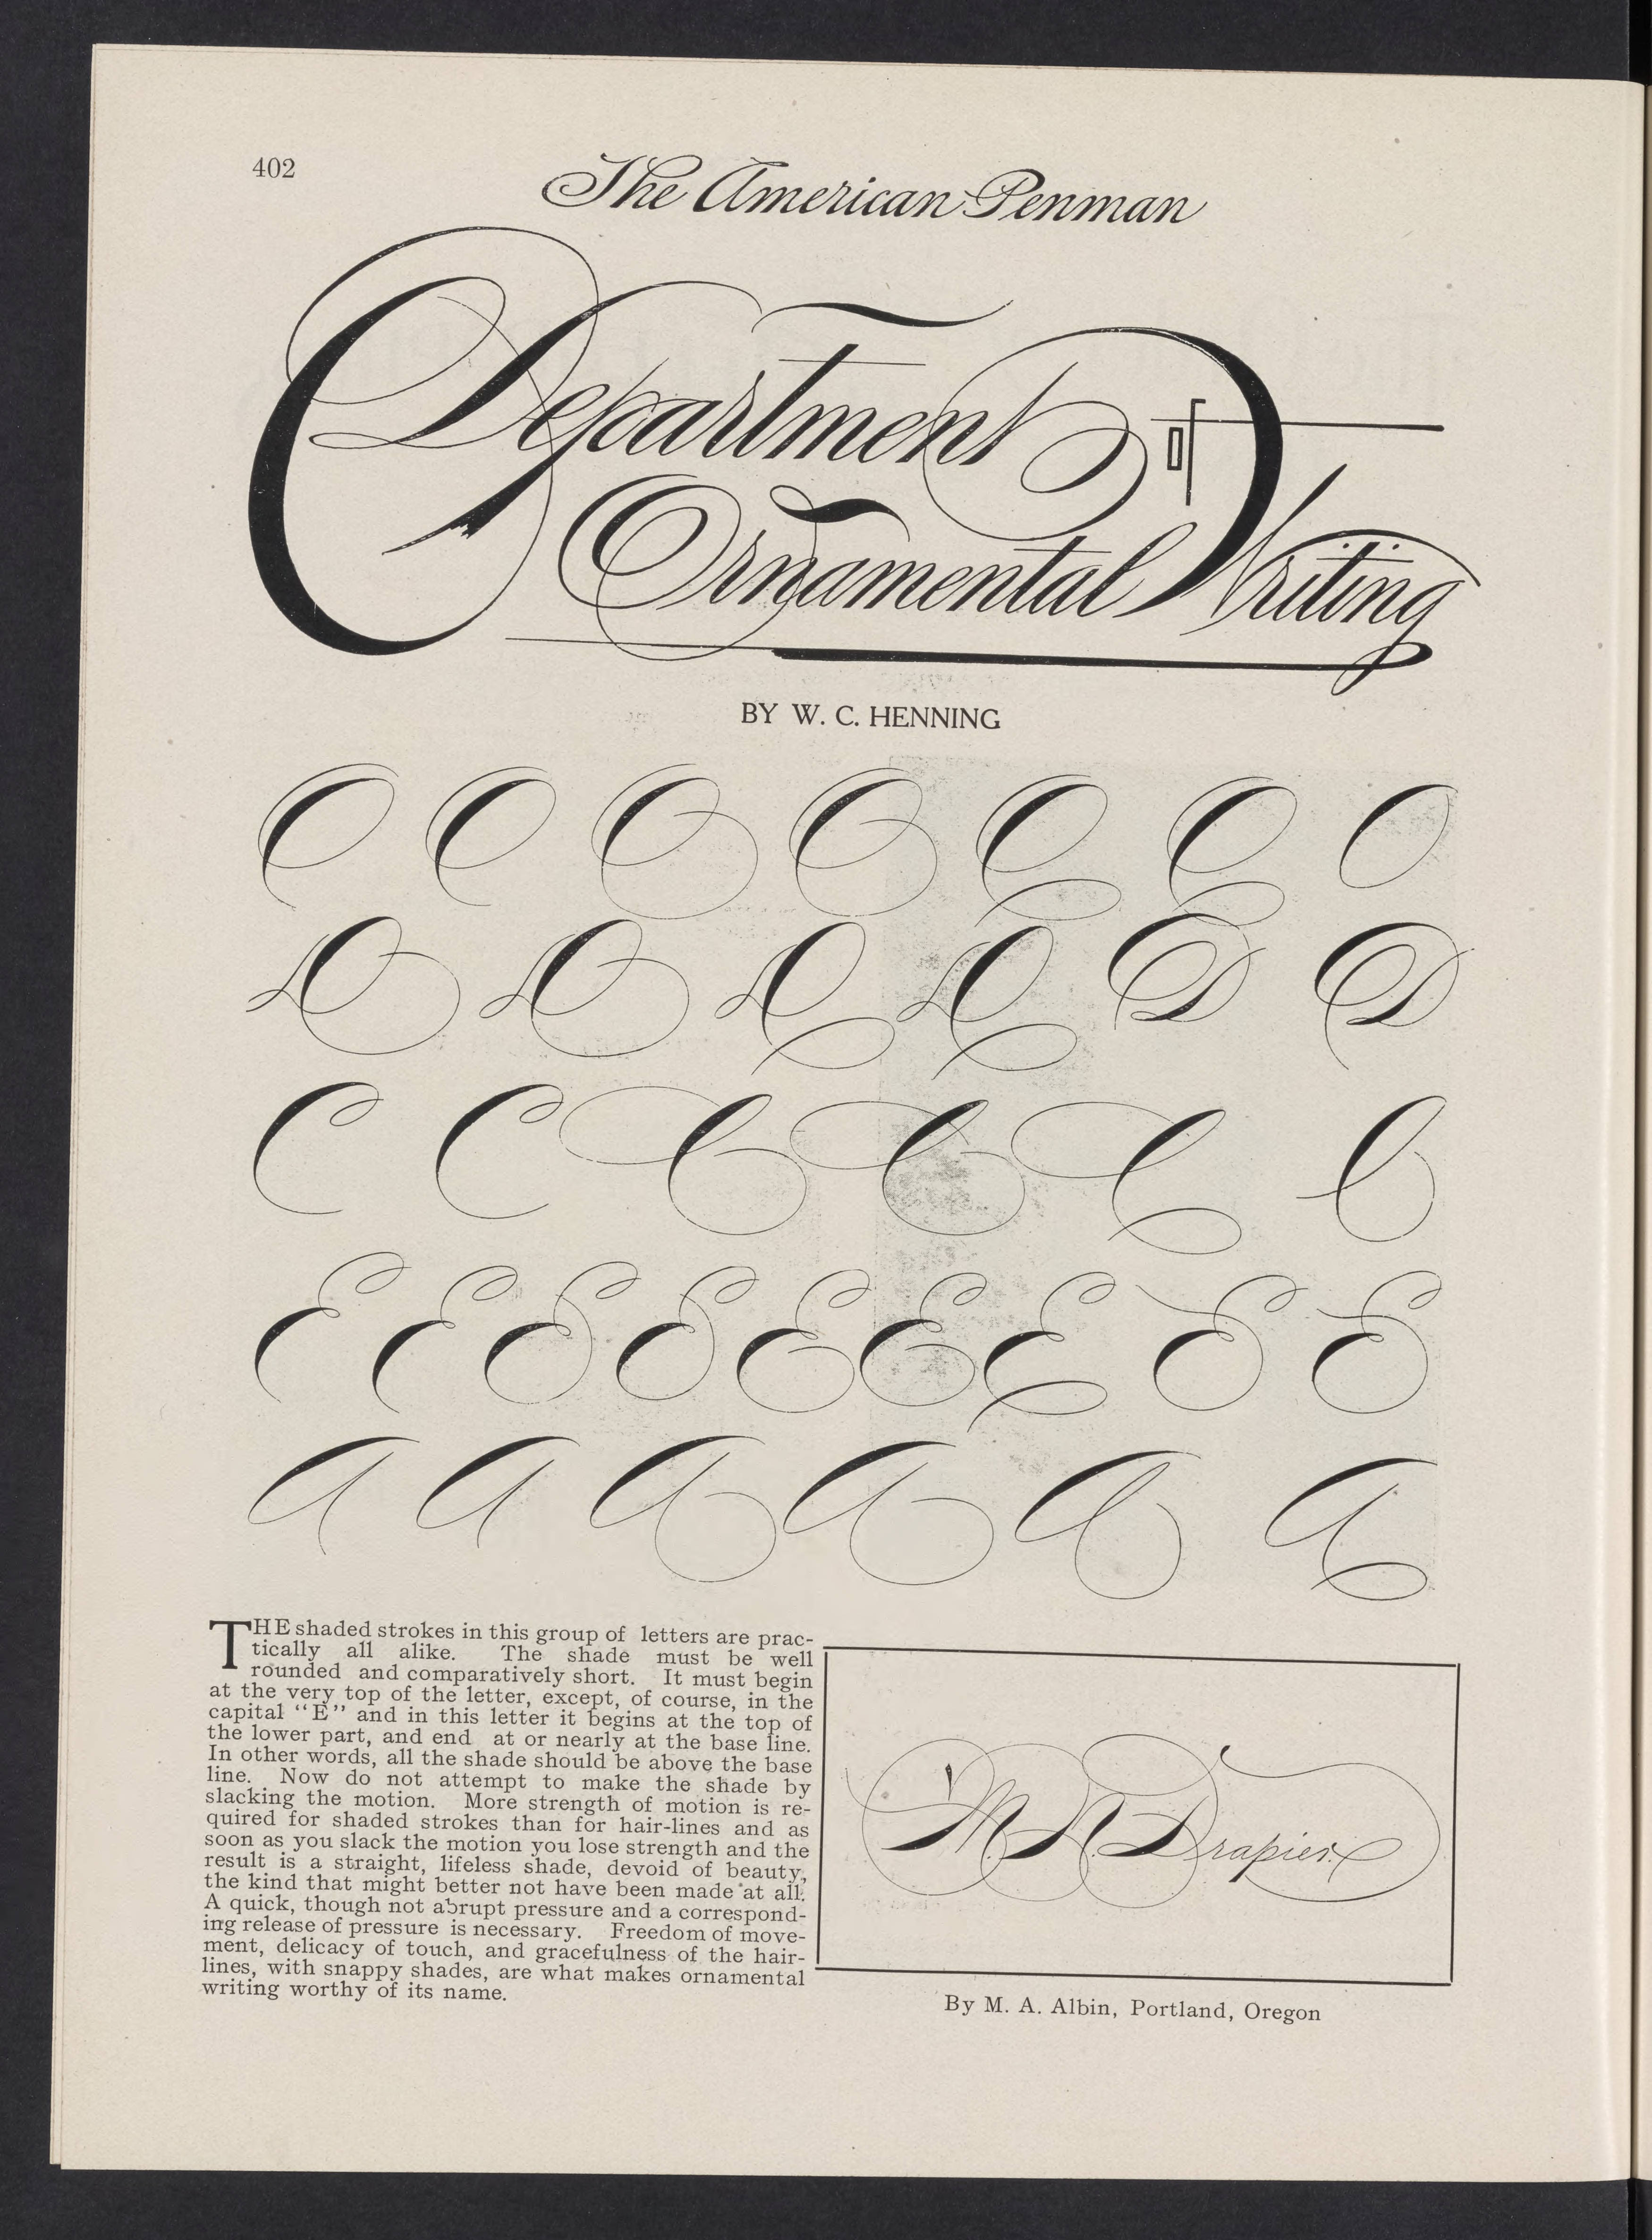 402
The American Penman
Department of
Ornamental Writing
BY W. C. HENNING
O O O O O O O
D D D D D D
C C C C C C
E E E E E E E E E
A A A A A A
THE shaded strokes in this group of letters are prac-
tically all alike. The shade must be well
rounded and comparatively short. It must begin
at the very top of the letter, except, of course, in the
capital "E" and in this letter it begins at the top of
the lower part, and end at or nearly at the base line.
In other words, all the shade should be above the base
line. Now do not attempt to make the shade by
slacking the motion. More strength of motion is re-
quired for shaded strokes than for hair-lines and as
soon as you slack the motion you lose strength and the
result is a straight, lifeless shade, devoid of beauty,
the kind that might better not have been made at all.
A quick, though not abrupt pressure and a correspond-
ing release of pressure is necessary. Freedom of move-
ment, delicacy of touch, and gracefulness of the hair-
lines, with snappy shades, are what makes ornamental
writing worthy of its name.
Drapier.
By M. A. Albin, Portland, Oregon